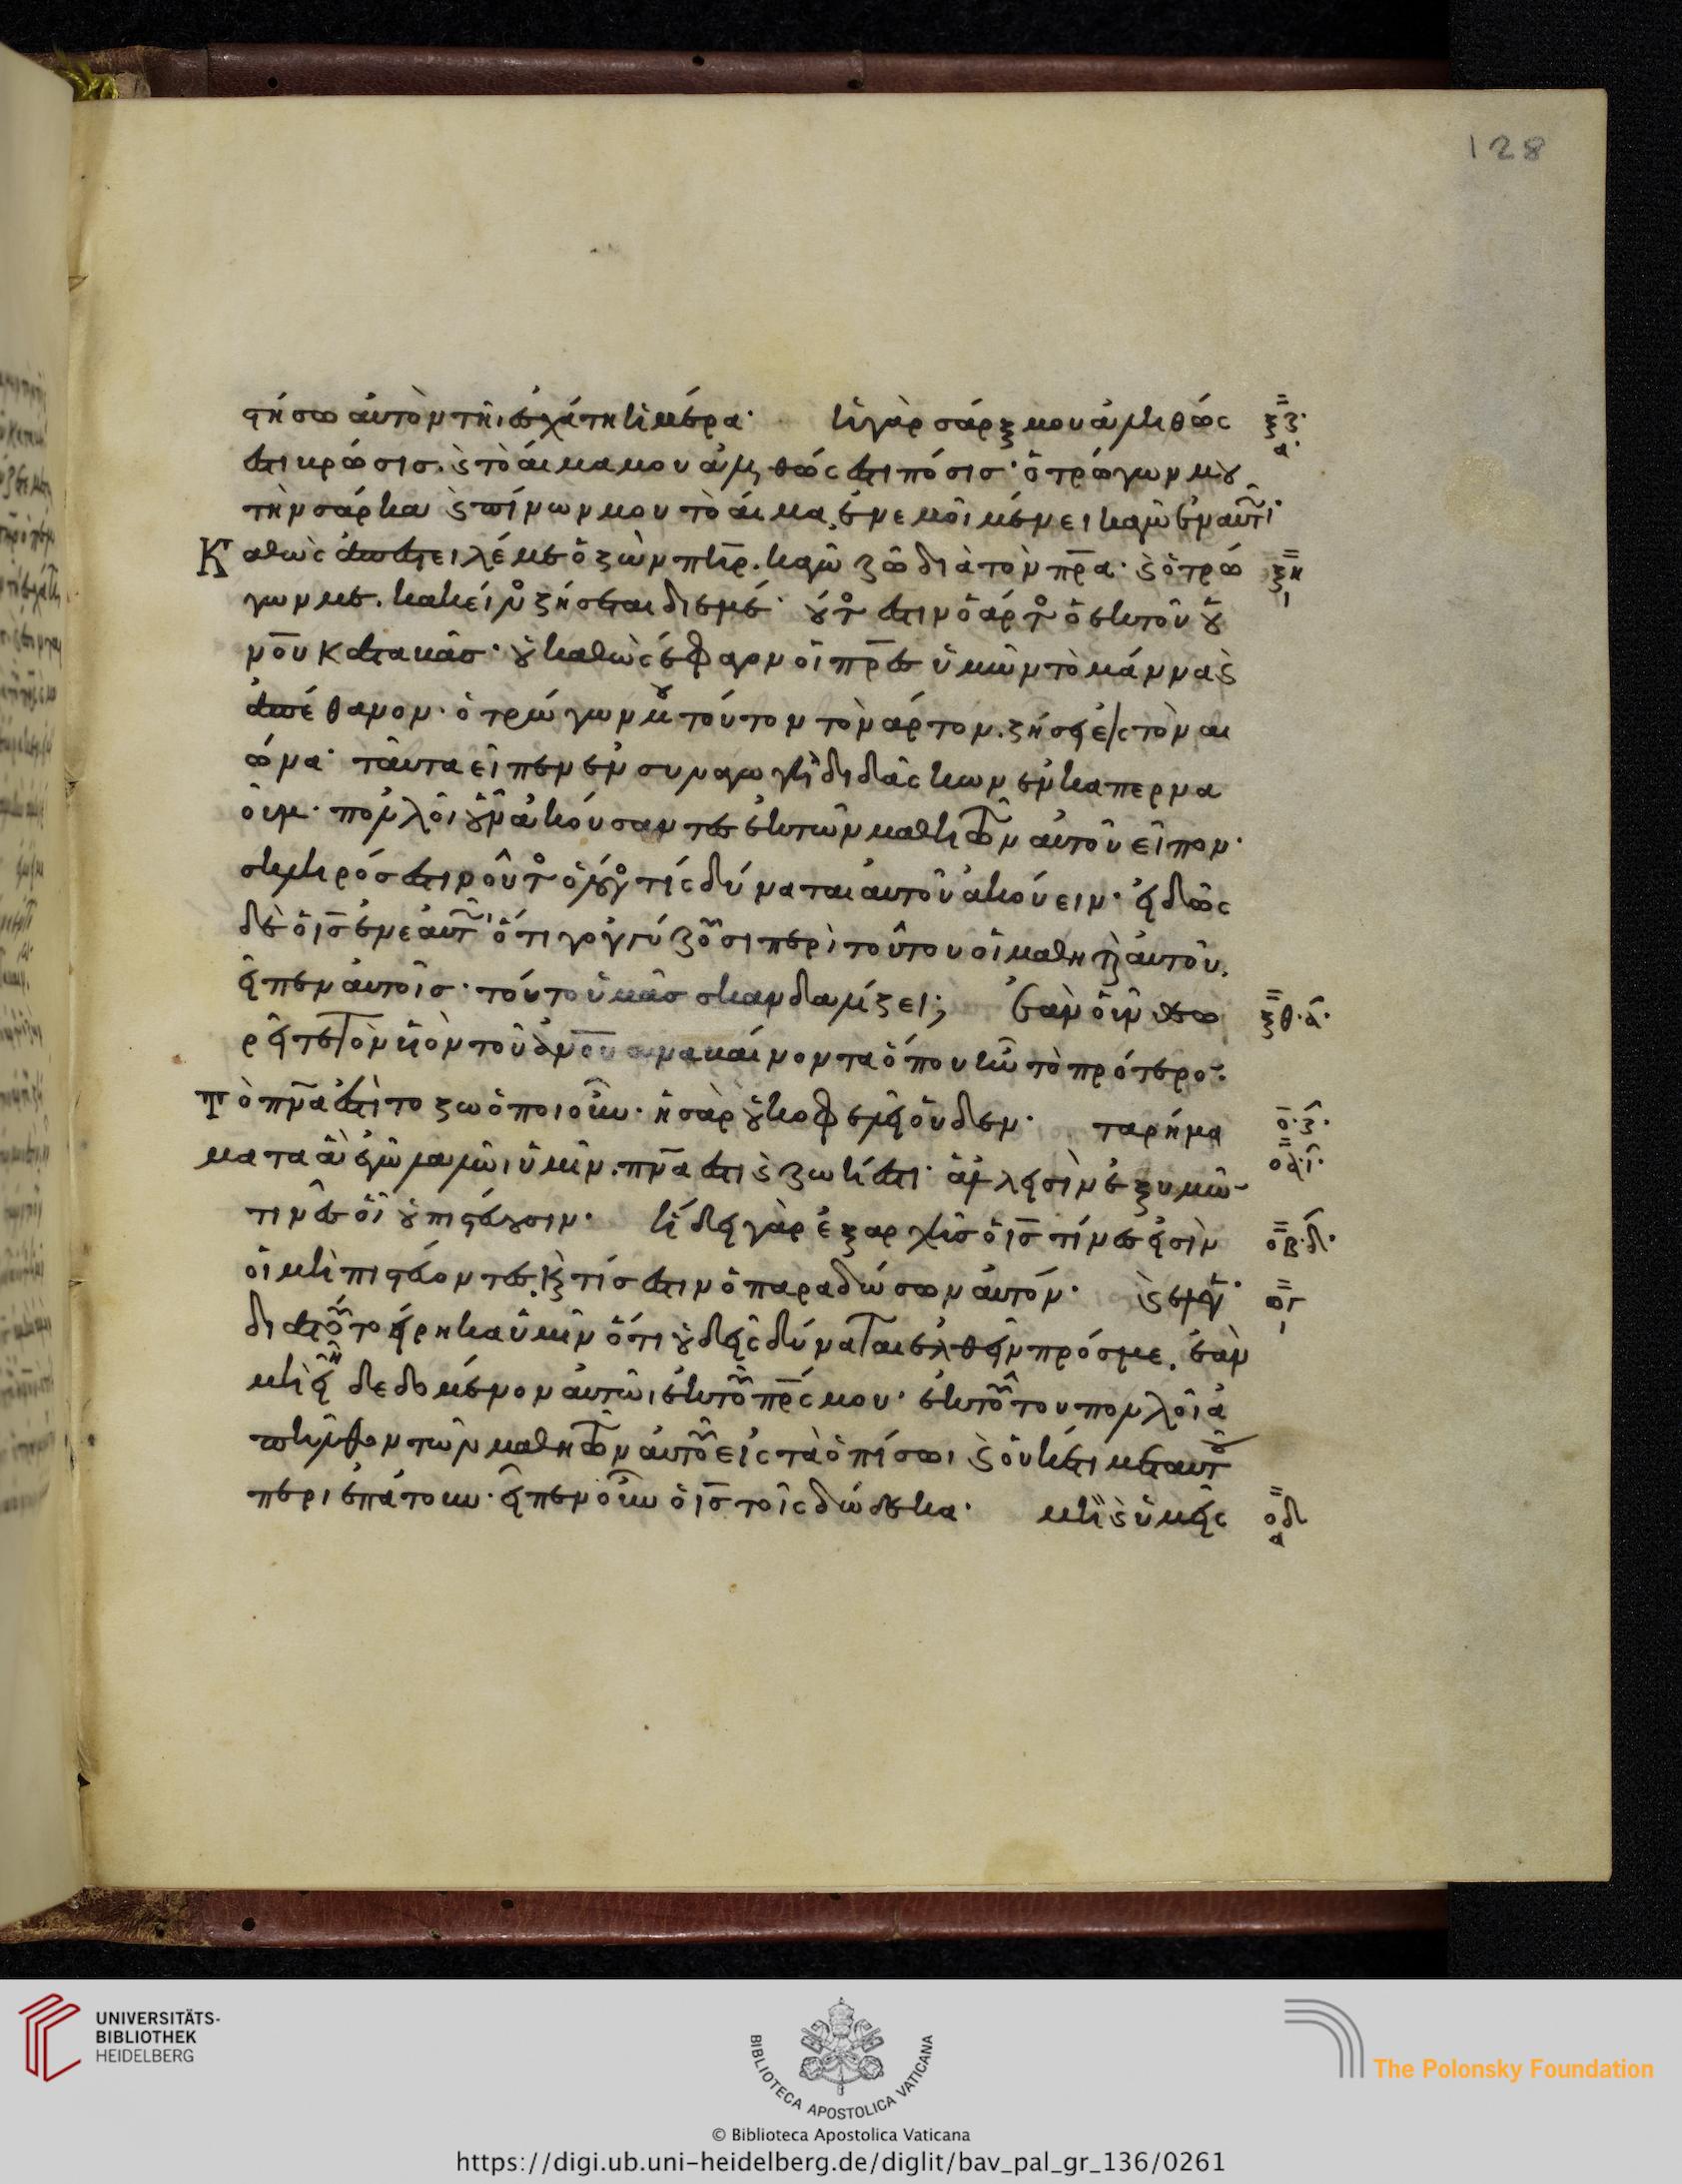 128
στήσω αὐτὸν τῆι ἐσχάτη ἡμέρα· ἡ γὰρ σάρξ μου ἀληθῶς
ξ̄ζ· α·
ἐστι βρῶσισ. ϗ τὸ αἷμα μου ἀληθῶς ἐστι πόσισ· ὁ τρώγων μου
τὴν σάρκα ϗ πίνων μου τὸ αἷμα, ἐν ἐμοὶ μένει καγὼ ἐν αὐτῶ·
Καθὼς ἀπέστειλέ με ὁ ζῶν π̅η̅ρ. καγὼ ζῶ διὰ τὸν π̅ρ̅α· ϗ ὁ τρώ
ξ̄η ι
γων με. κακεῖνος ζήσεται δι ἐμέ· οὗτός ἐστιν ὁ ἄρτος ὁ ἐκ τοῦ οὐ
ν̅ο̅υ καταβάσ· οὐ καθὼς ἔφαγον οἱ π̅ρ̅ες ὑμῶν τὸ μάννα ϗ
ἀπέθανον· ὁ τρώγων μου τοῦτον τὸν ἄρτον. ζήσει εἰς τὸν αι
ῶνα· ταῦτα εἶπεν ἐν συναγωγῆ διδάσκων ἐν καπερνα
οὺμ· πολλοὶ οὖν ἀκούσαντες ἐκ τῶν μαθητῶν αὐτοῦ εἶπον·
σκληρός ἐστιν οὗτος ὁ λόγος τίς δύναται αὐτοῦ ἀκούειν· εἰδὼς
δὲ ὁ ι̅σ̅ ἐν ἑαυτῶ ὅτι γογγύζουσι περὶ τούτου οἱ μαθηταὶ αὐτοῦ.
εἶπεν αὐτοῖσ· τοῦτο ὑμᾶσ σκανδαλίζει; ἐὰν οὖν θεω
ξ̄θ· α·
ρῆτε τὸν υ̅ὸν τοῦ α̅ν̅ο̅υ αναβαίνοντα ὅπου ἦν τὸ πρότερον·
Τὸ π̅ν̅α ἐστὶ τὸ ζωοποιοῦν· ἡ σὰρξ οὐκ ὠφελεῖ οὐδέν· τα ρήμα
ο· γ· ο̄α· ι·
ματα ἃ ἐγὼ λαλῶ ὑμῖν. π̅ν̅α ἐστι ϗ ζωή ἐστι· ἀλλ εἰσὶν ἐξ ὑμῶν
τινὲς οἳ οὐ πιστεύουσιν· ἤδει γὰρ ἐξ ἀρχῆσ ὁ ι̅σ̅ τίνες εἰσὶν
ο̄β· δ·
οἱ μὴ πιστεύοντες. ϗ τίσ ἐστιν ὁ παραδώσων αὐτόν· ϗ ἔλεγεν·
ο̄γ ι
διὰ τοῦτο εἴρηκα ὑμῖν ὅτι οὐδεὶς δύναται ἐλθεῖν πρόσ με. ἐὰν
μὴ ἦ δεδομένον αὐτῶι ἐκ τοῦ π̅ρ̅ς μου· ἐκ τούτου πολλοὶ ἀ
πῆλθον τῶν μαθητῶν αὐτοῦ εἰς τὰ ὀπίσω ϗ οὐκέτι μετ αὐτοῦ
περιεπάτουν· εἶπεν οὖν ὁ ι̅σ̅ τοῖς δώδεκα· μὴ ϗ ὑμεῖς
ο̄δ α
UNIVERSITÄTS-
BIBLIOTHEK
HEIDELBERG
BIBLIOTECA APOSTOLICA VATICANA
The Polonsky Foundation
© Biblioteca Apostolica Vaticana
https://digi.ub.uni-heidelberg.de/diglit/bav_pal_gr_136/0261